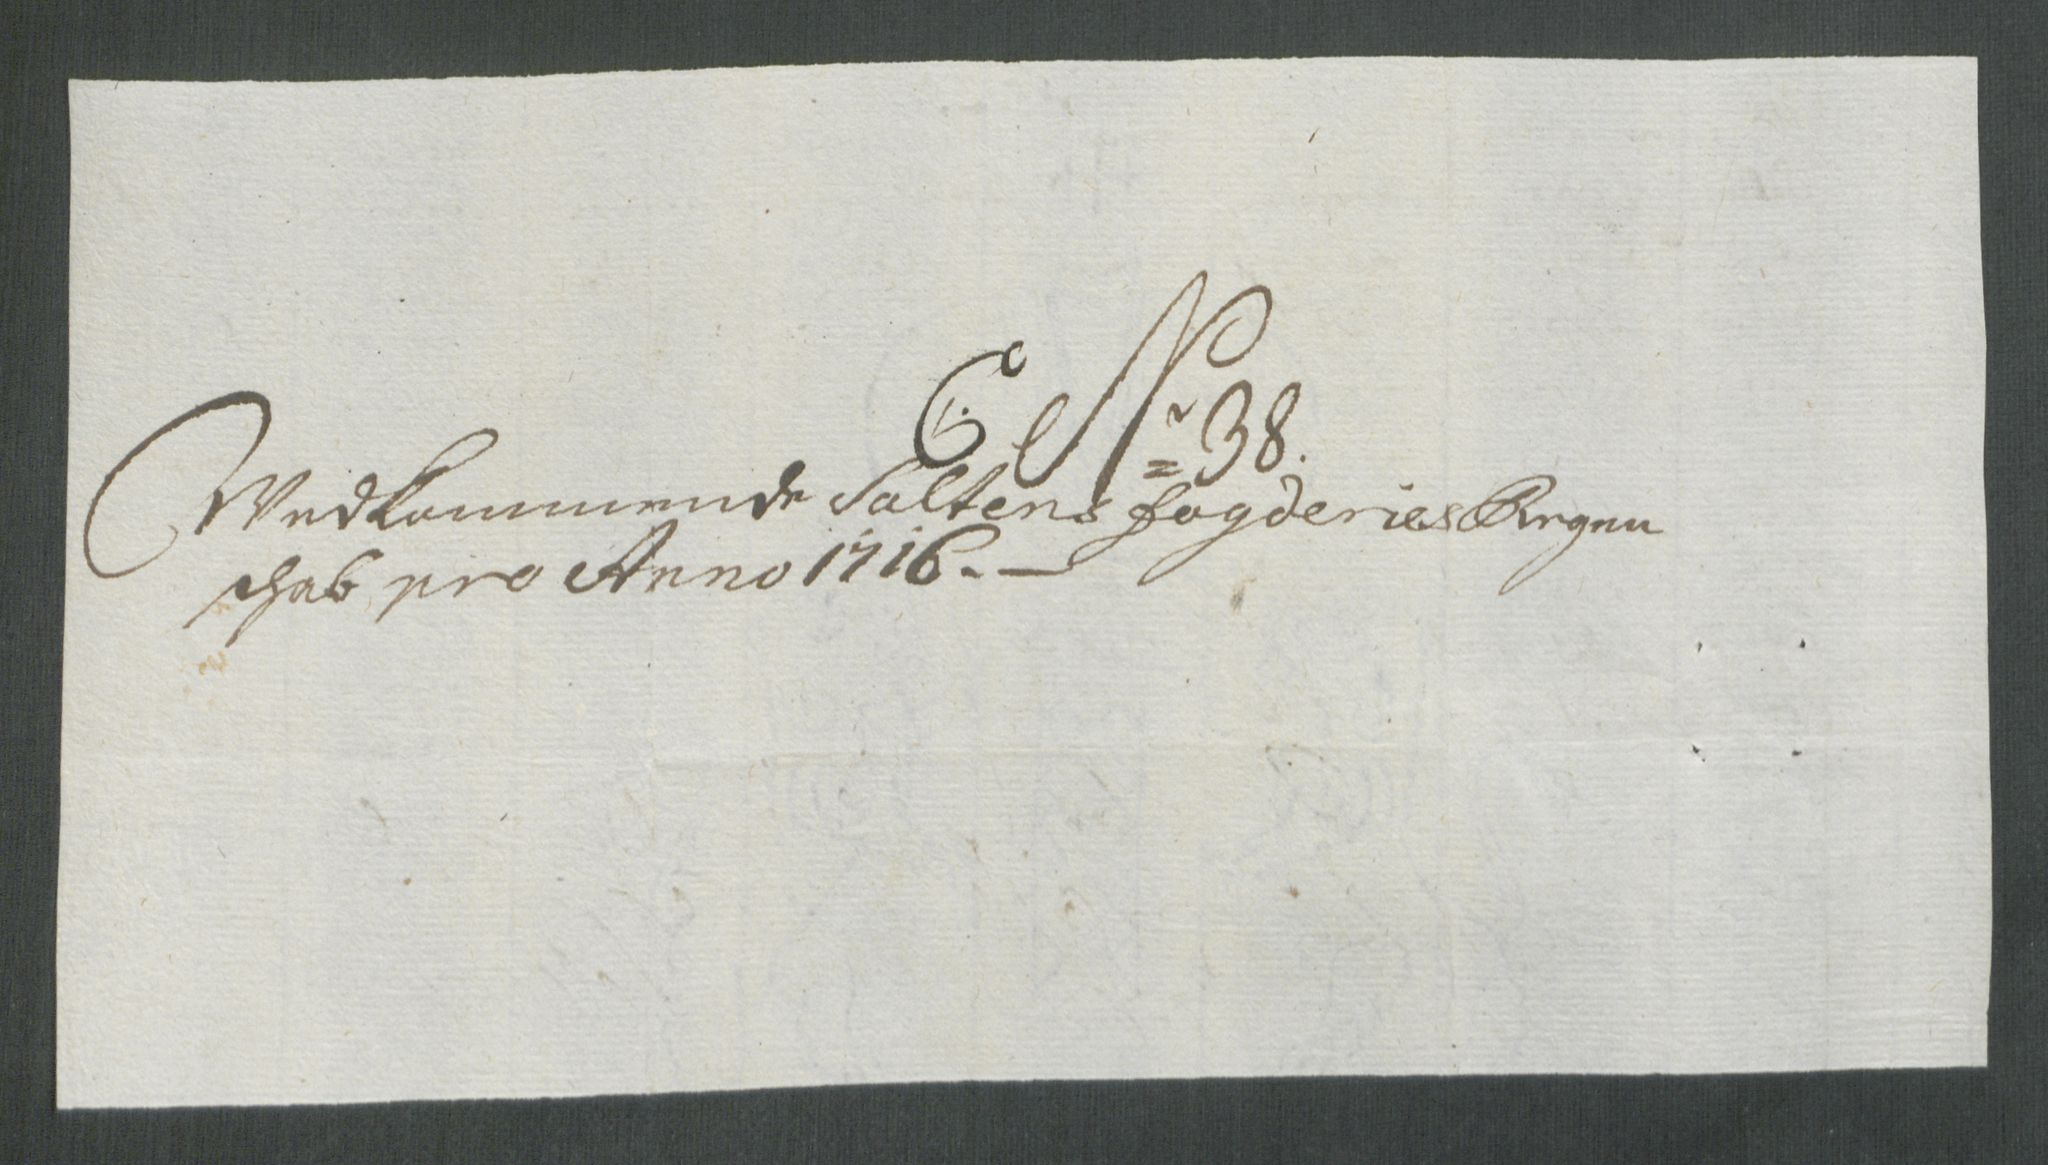 C No 38.
Vedkommende Saltens fogderies Regen
schab pro Anno 1716.